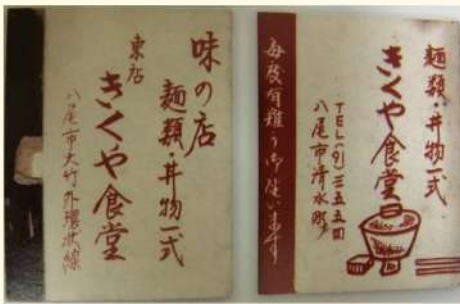 味の店
麺類・丼物一式
東店
きくや食堂
八尾市大竹外環状線
麺類・丼物一式
きくや食堂
TEL(91)三五五四
八尾市清水町
毎度有難う御座います